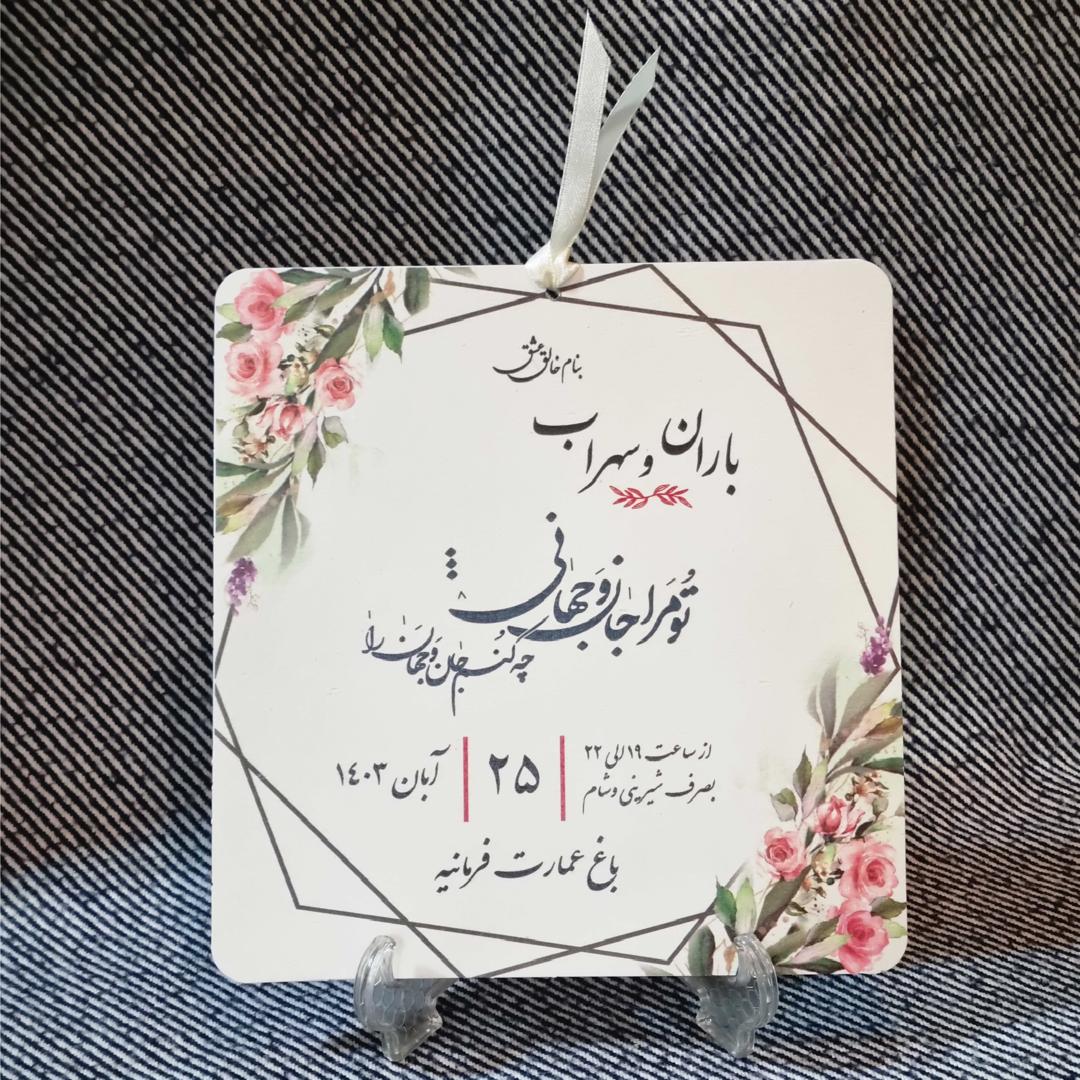 بنام خالق عشق
باران و سهراب
تُو مَرا جان وَ جهانی
چه کُنم جان وَ جهان را
از ساعت ۱۹ الی ۲۲
بصرف شیرینی و شام
۲۵
آبان ۱۴۰۳
باغ عمارت فرمانیه